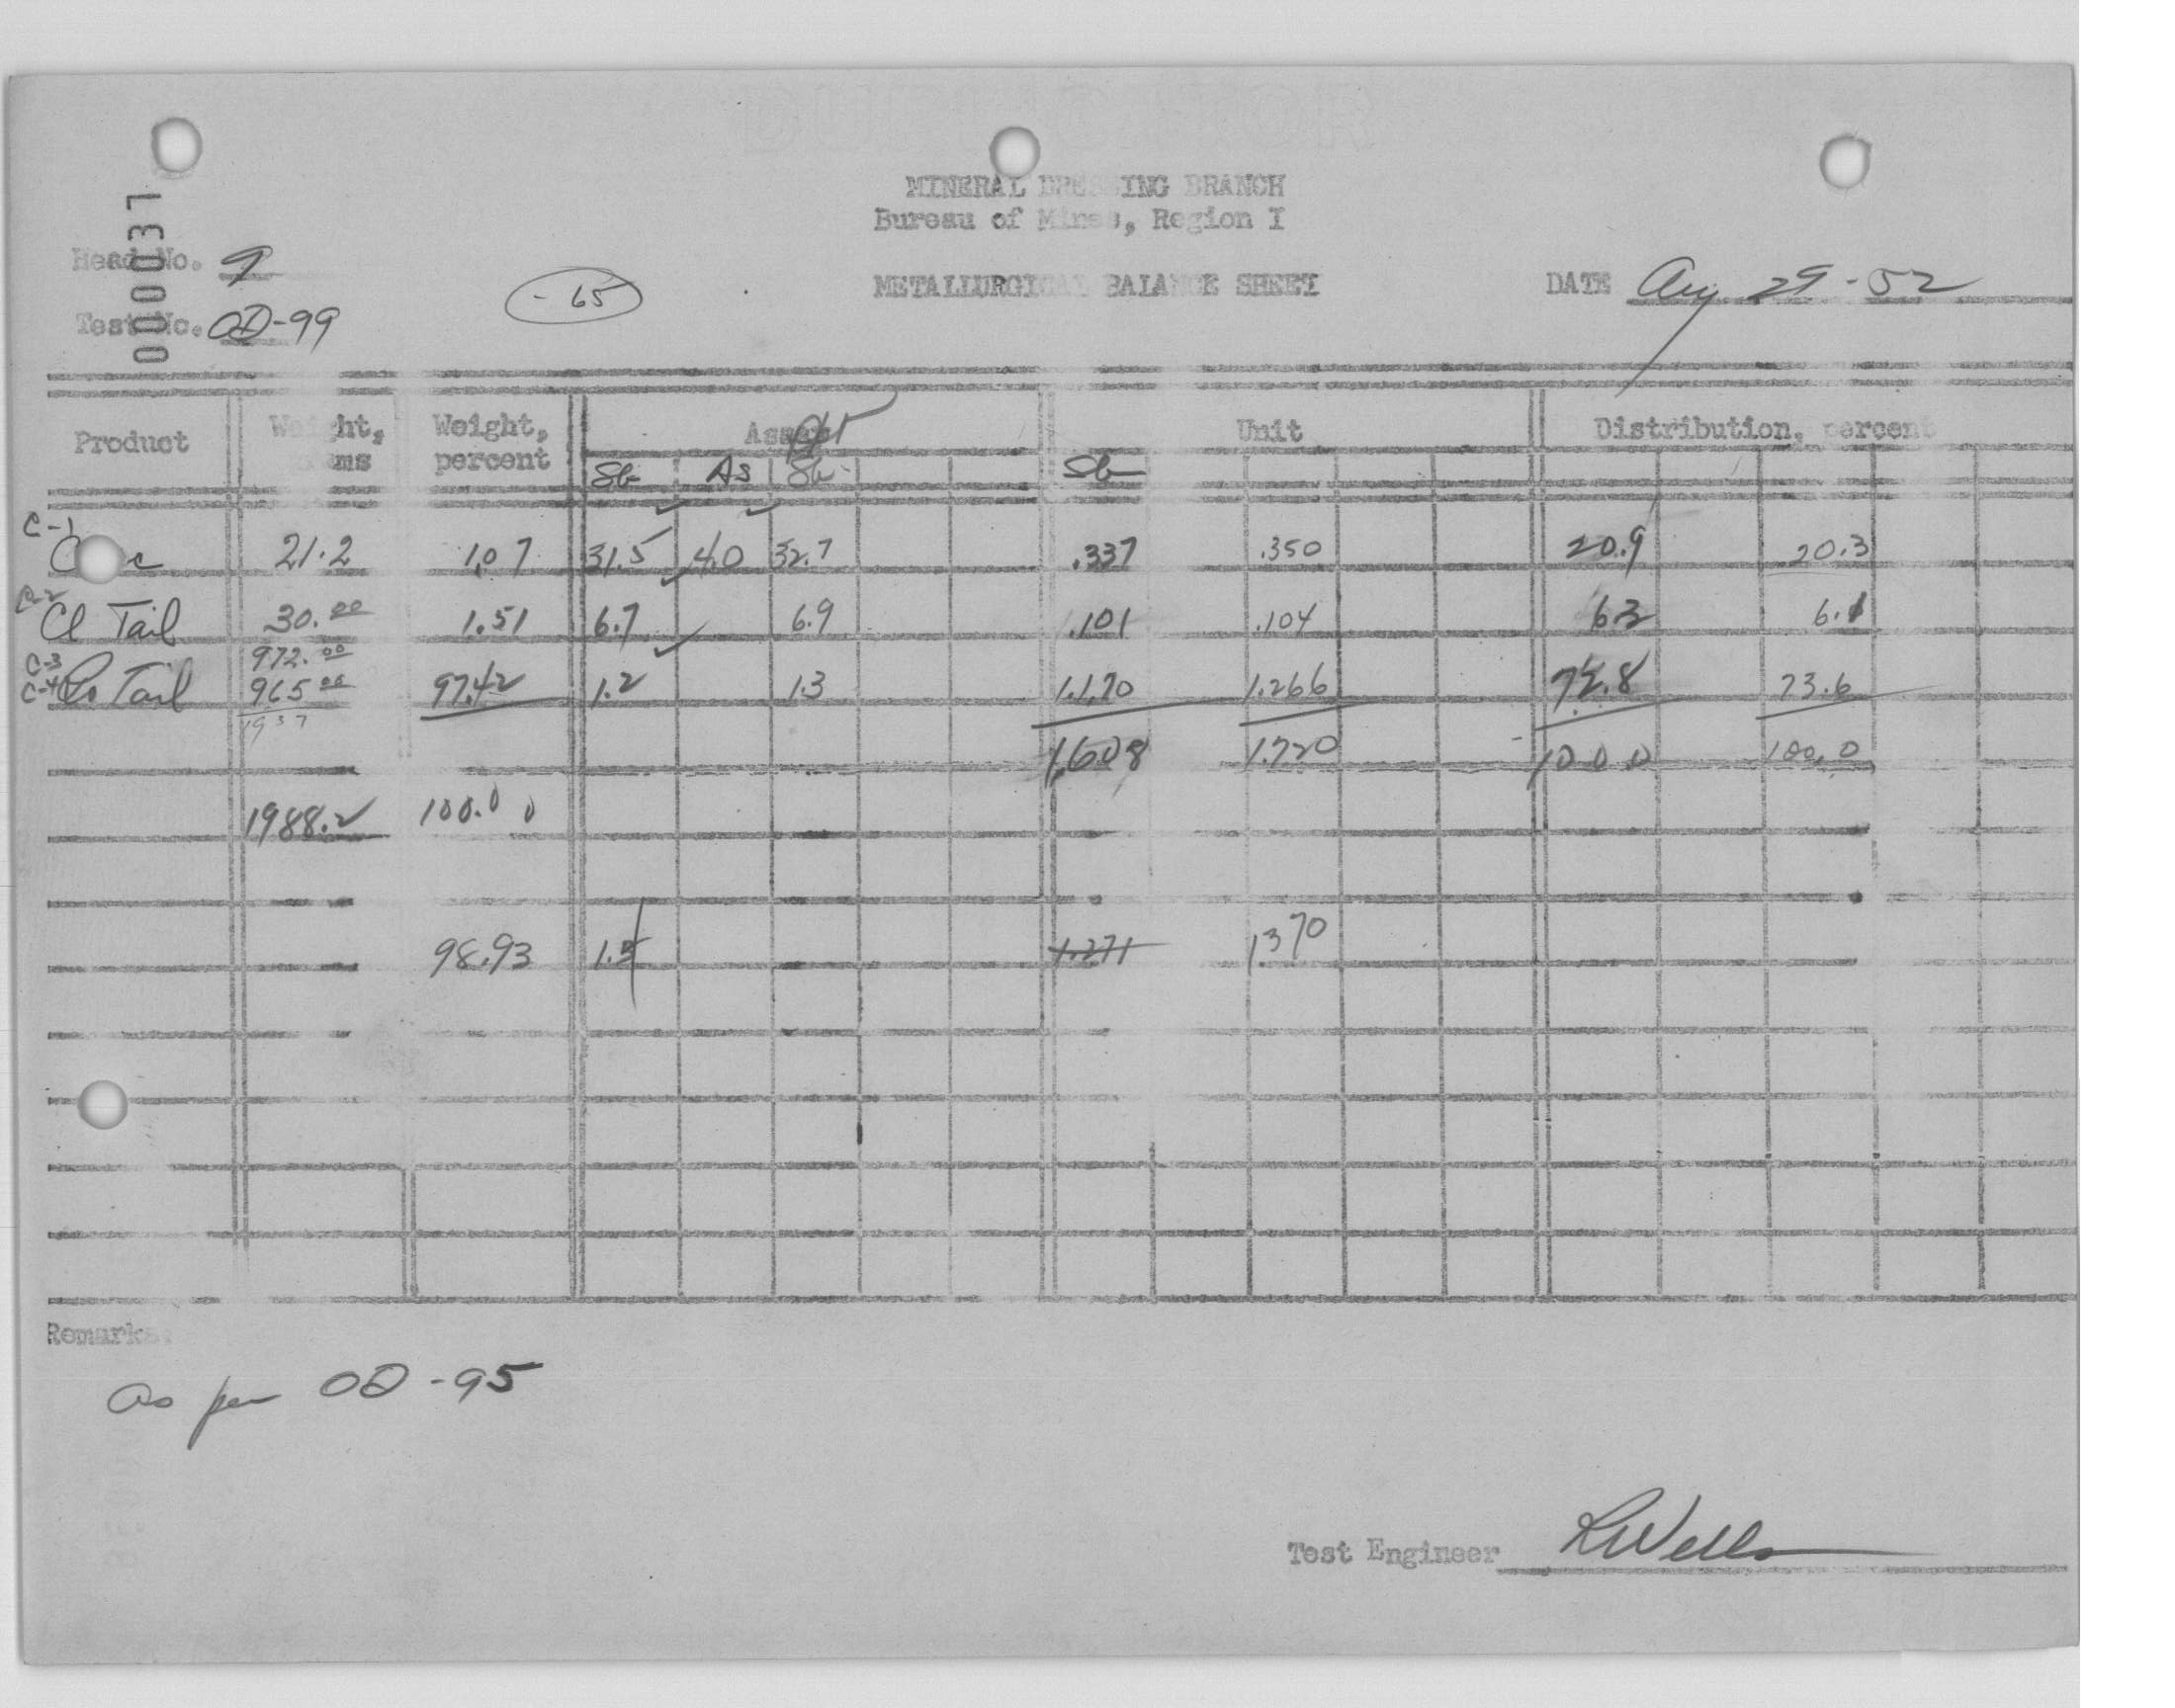 MINERAL DRESSING BRANCH
Bureau of Mines, Region I
000037
Head No. 9
METALLURGICAL BALANCE SHEET
DATE Aug 29-52
- 65
Test No. OD-99
Product Weight, Weight, percent Unit Distribution, percent
Sb As Sb Sb
C-1
21.2 1.07 31.5 4.0 32.7 .337 .350 20.9 20.3
C-2
Cl Tail 30.00 1.51 6.7 6.9 .101 .104 6.3 6.1
C-3 972.00
C-4 Ro Tail 965.00 97.42 1.2 1.3 1.170 1.266 72.8 73.6
1937
1.608 1.720 100.0 100.0
1988.2 100.00
98.93 1.271 1.370
Remarks:
as per OD-95
Test Engineer RWells